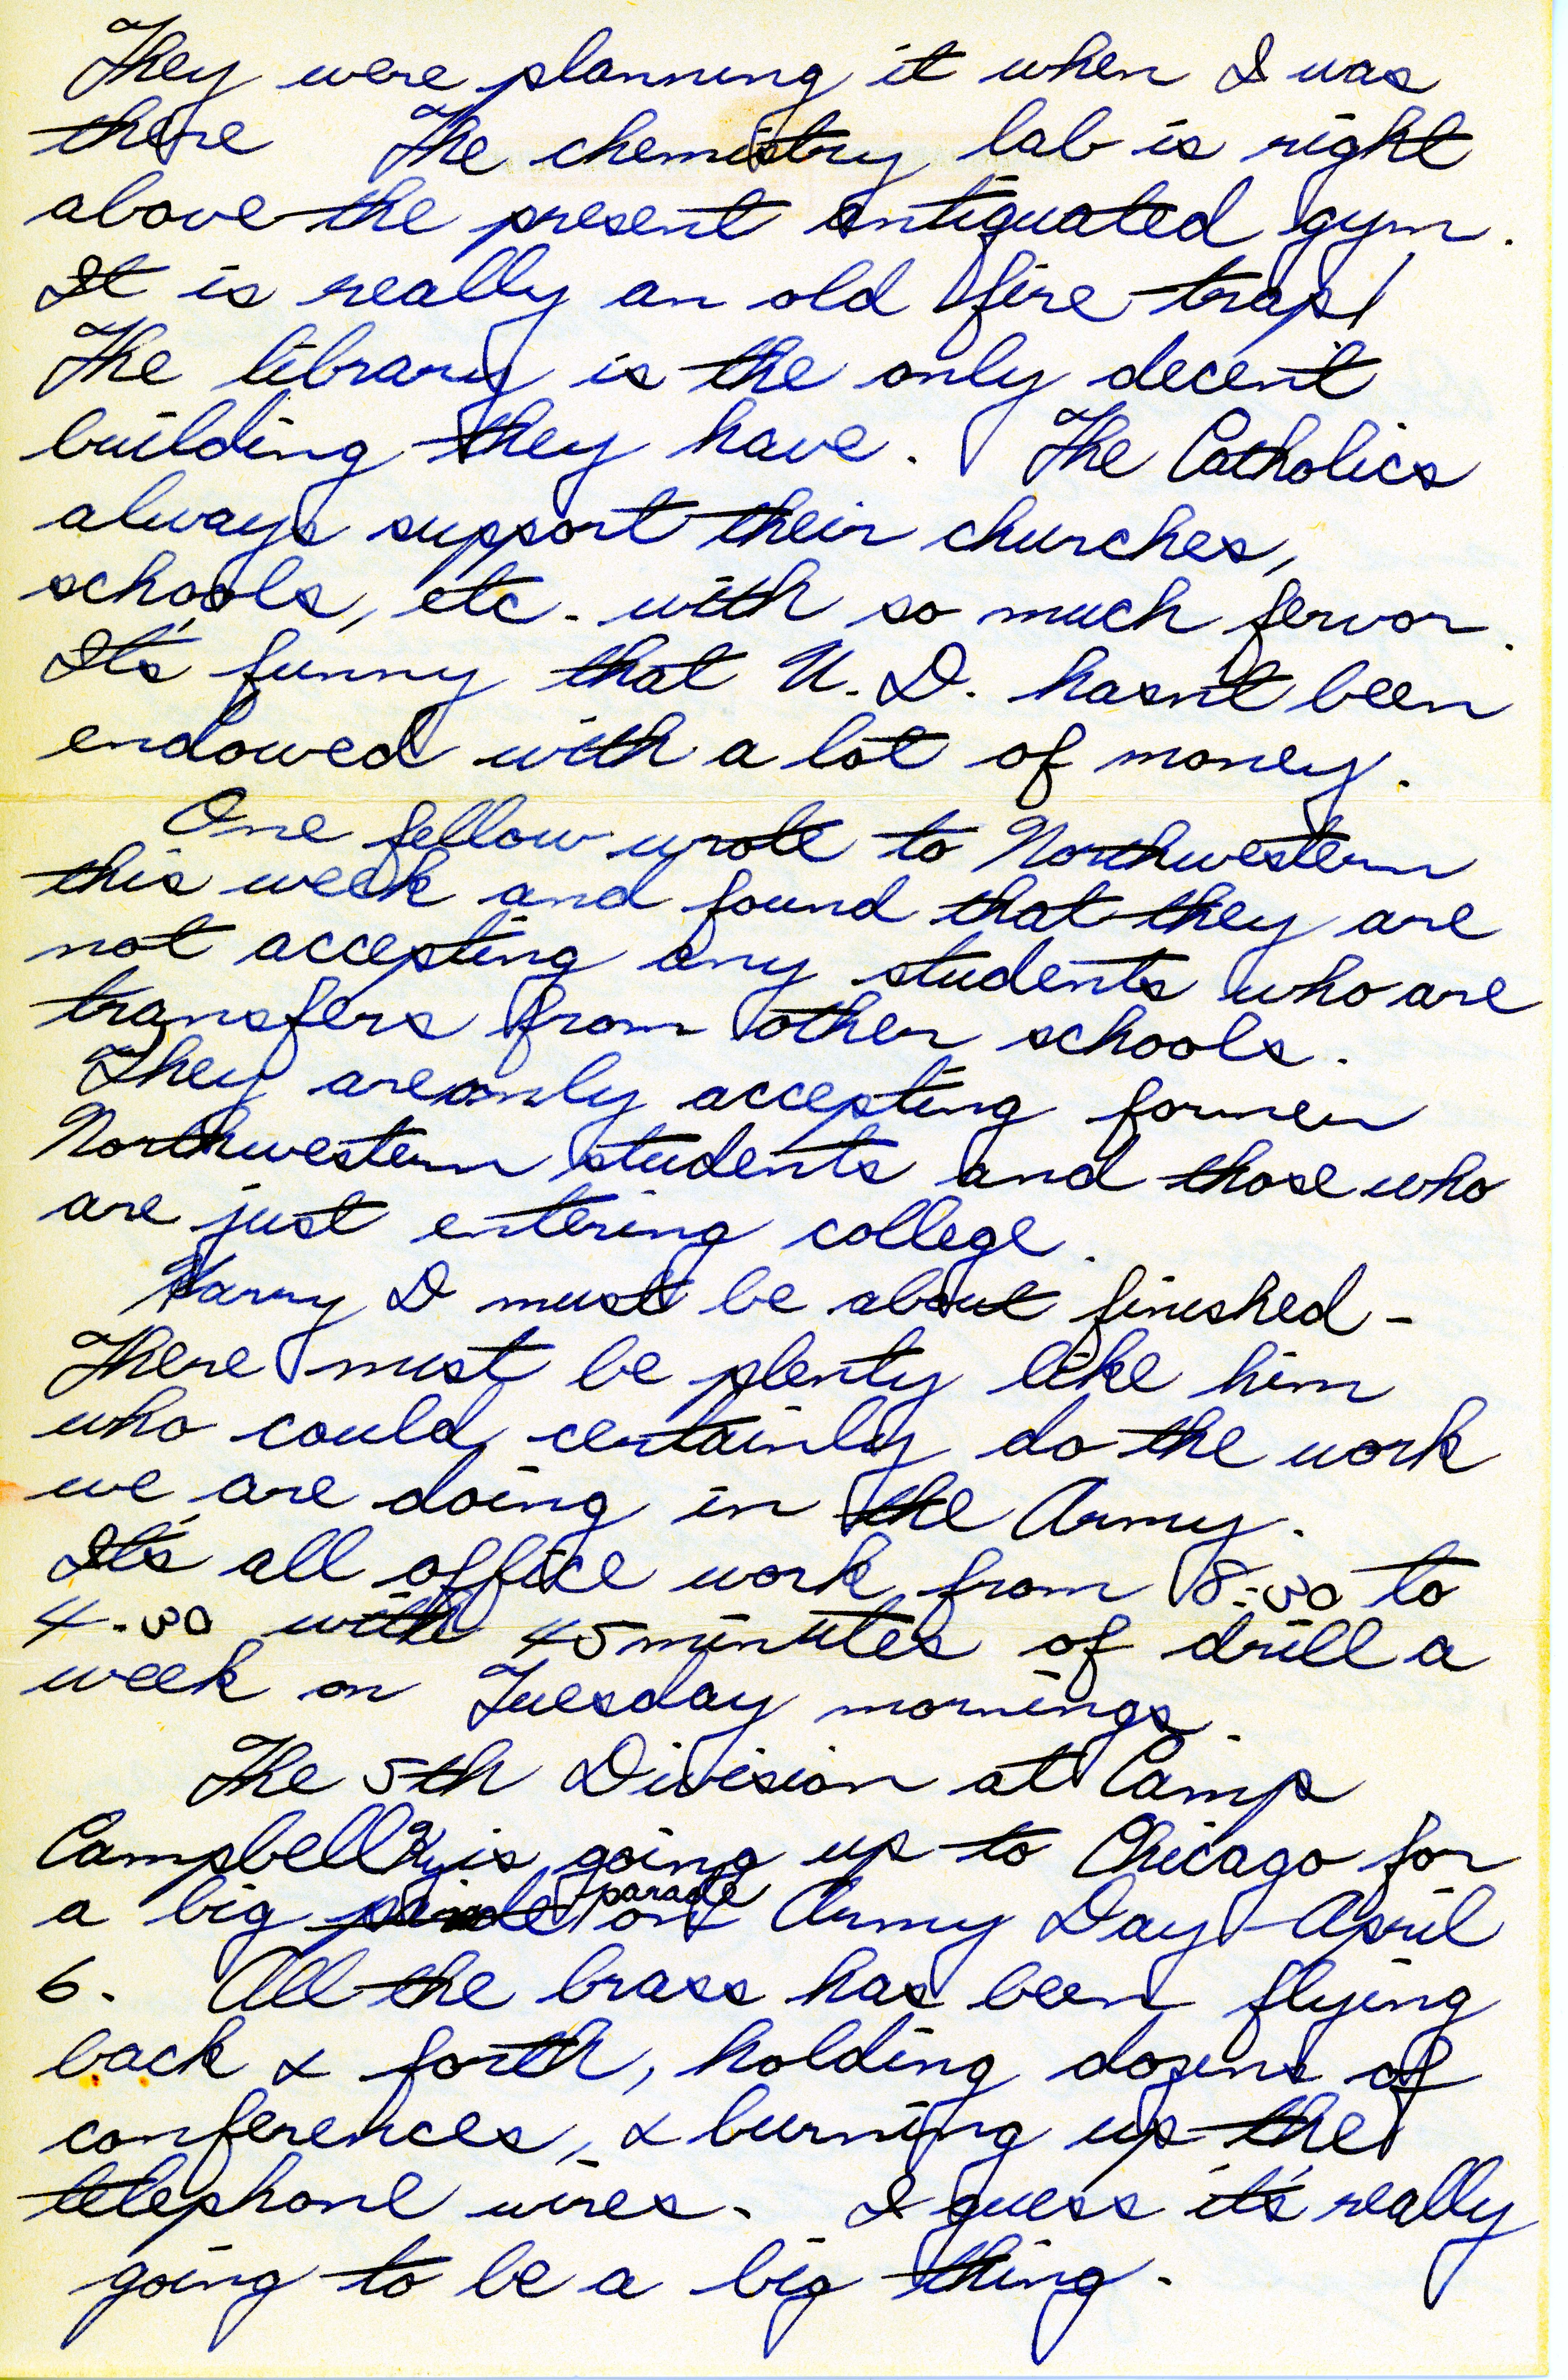 They were planning it when I was
there The chemistry lab is right
above the present antiquated gym.
It is really an old fire trap!
The library is the only decent
building they have. The Catholics
always support their churches,
schools, etc. with so much fervor.
It's funny that U. D. hasn't been
endowed with a lot of money.
One fellow wrote to Northwestern
this week and found that they are
not accepting any students who are
transfers from other schools.
They are only accepting former
Northwestern students and those who
are just entering college.
Harry D must be about finished -
There must be plenty like him
who could certainly do the work
we are doing in the Army.
It's all office work from 8:00 to
4:30 with 45 minutes of drill a
week on Tuesday mornings.
The 5th Division at Camp
Campbell Ky is going up to Chicago for
a big parade on Army Day - April
6. All the brass has been flying
back & forth, holding dozens of
conferences, & burning up the
telephone wires. I guess it's really
going to be a big thing.